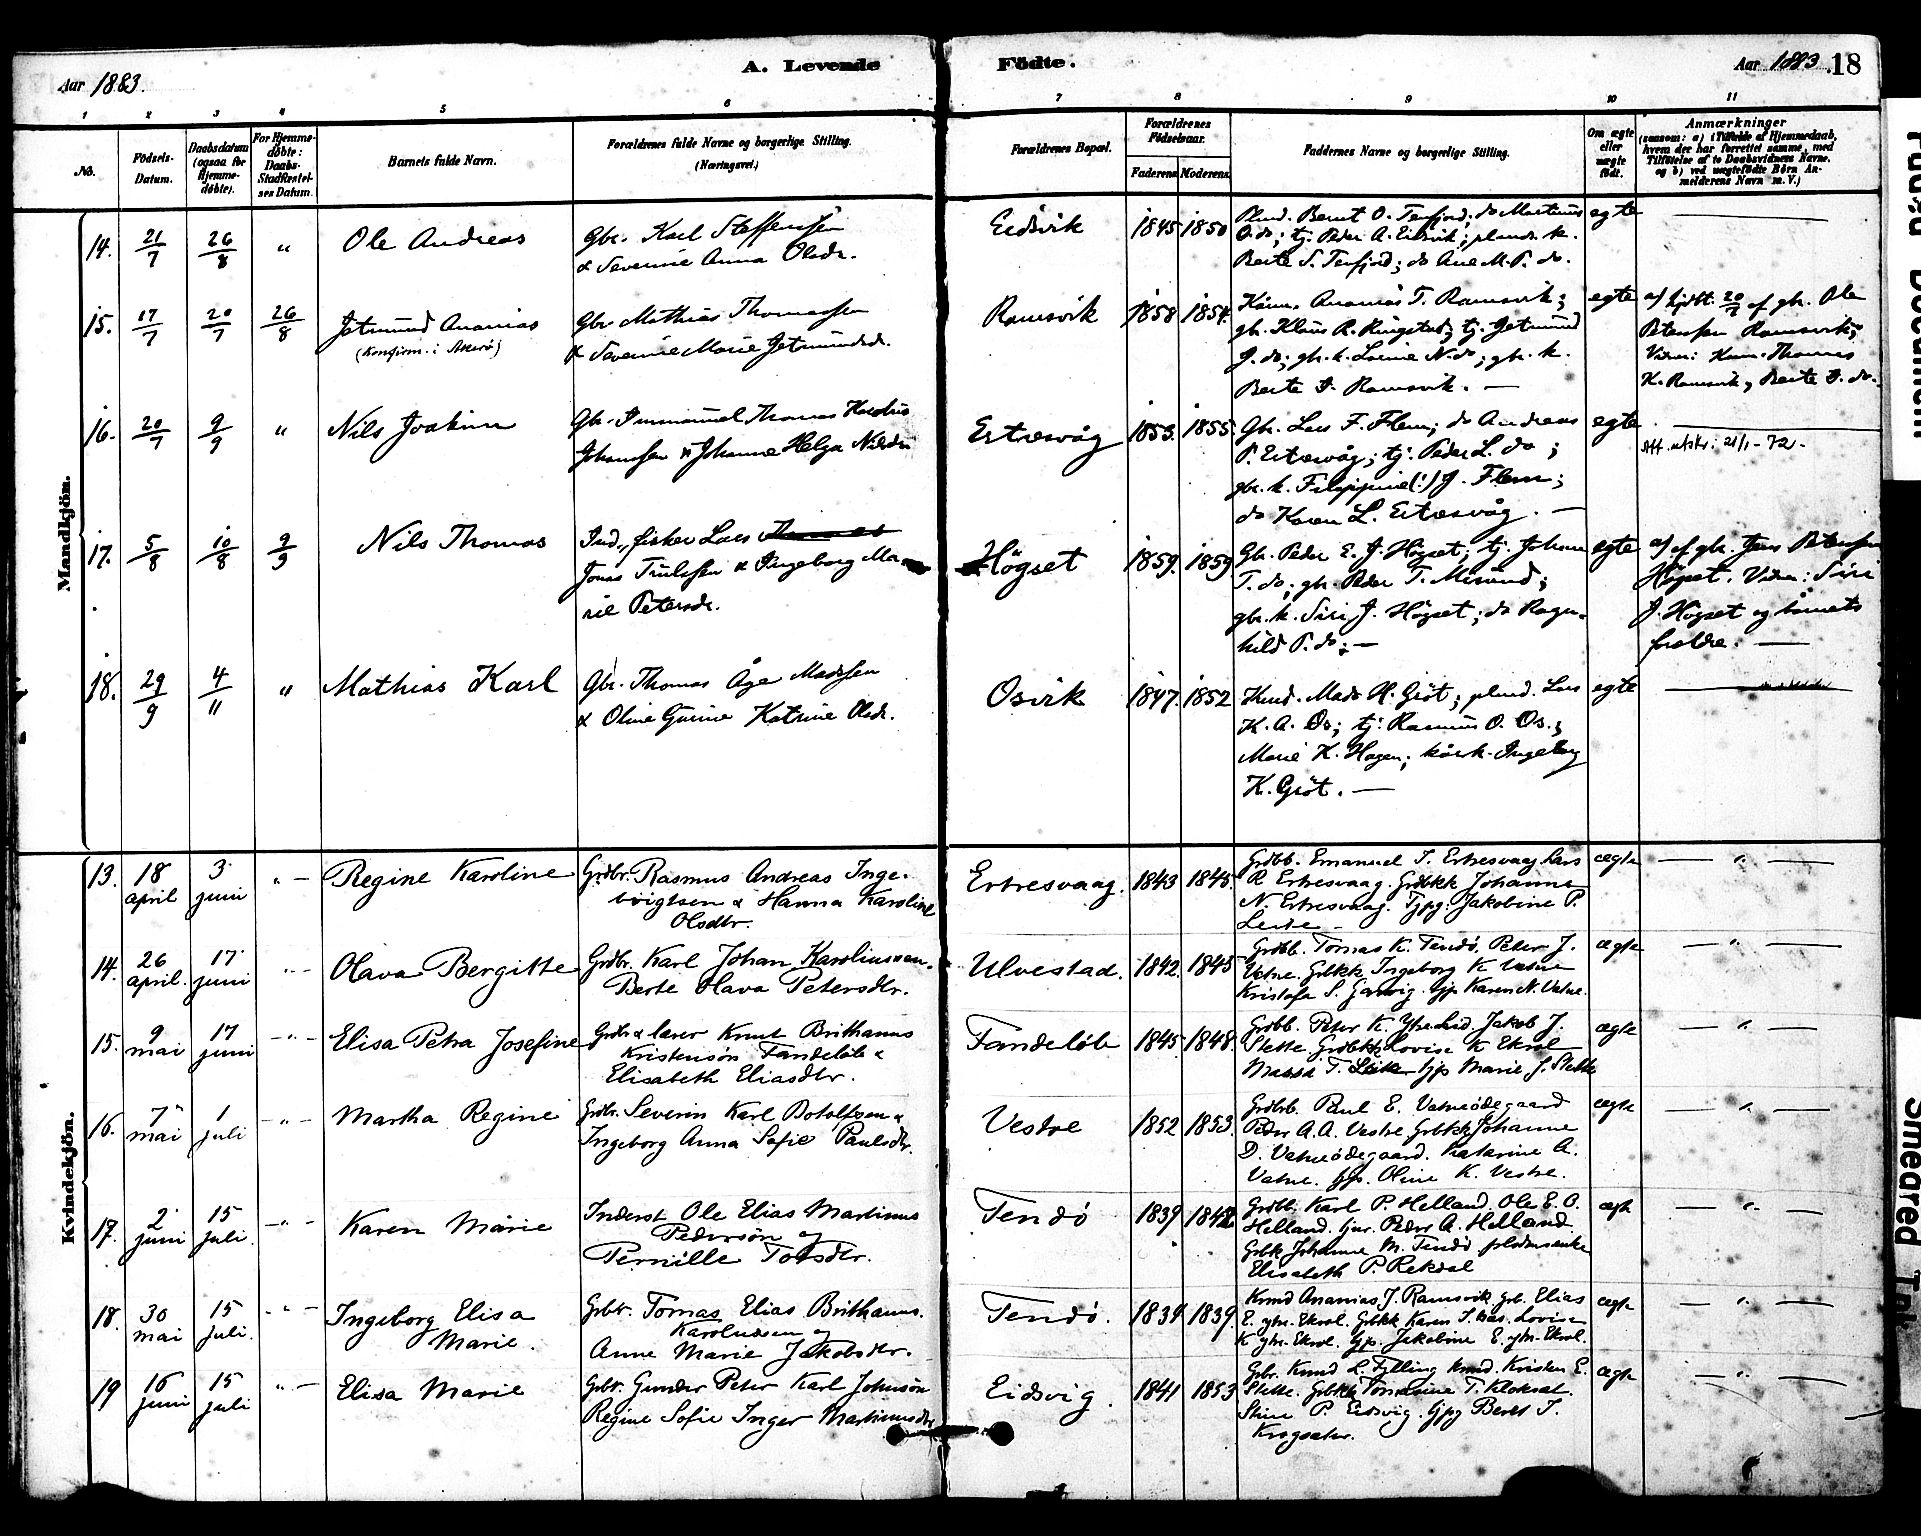 Aar 1883.
A. Levende Födte.
Aar 1883. 18
1 2 3 4 5 6 7 8 9 10 11
No.
Födsels-Datum.
Daabsdatum (ogsaa for Hjemmedöbte).
For Hjemmedöbte: Daabs-Stadfæstelses Datum.
Barnets fulde Navn.
Forældrenes fulde Navne og borgerlige Stilling. (Næringsvei.)
Forældrenes Bopæl.
Forældrenes Födselsaar.
Faderens Moderens
Faddernes Navne og borgerlige Stilling.
Om ægte eller uægte födt.
Anmærkninger
(saasom: a) i Tilfælde af Hjemmedaab, hvem der har forrettet samme, med Tilföielse af to Daabsvidners Navne, og b) ved uægtefödte Börn Anmelderens Navn m. V.)
Mandkjön.
14. 21/7 26/8 " Ole Andreas
Gbr. Karl Steffensen
& Severine Anna Olsdr.
Eidsvik 1845 1850
Plmd. Bernt O. Tenfjord; do Martinus
O. do; tj. Peder A. Eidsvik; plmds. k.
Berte S. Tenfjord; do Ane M. P. do.
egte
15. 17/7 20/7 26/8 Jetmund Ananias
(Konfirm. i Akerö)
Gbr. Mathias Thomassen
& Severine Marie Jetmundsdr.
Ramsvik 1858 1854.
Kårm. Ananias T. Ramsvik;
gbr. Klaus R. Ringstad; tj. Jetmund
J. do; gbr. k. Lovine N. do; gbr. k.
Berte I. Ramsvik. —
egte
a) hjdbt. 20/7 af gbr. Ole
Petersen Ramsvik;
Vidner: Kaarm. Thomas
K. Ramsvik, Berte I. do.
16. 20/7 9/9 " Nils Joakim
Gbr. Immanuel Thomas
Johansen & Johanne Helga Nilsdr.
Ertresvåg 1853. 1855.
Gbr. Lars F. Flem; do Andreas
P. Ertresvåg; tj. Peder L. do;
gbr. k. Filippine (!) J. Flem;
do Karen L. Ertresvåg. —
egte
Att. utskr: 21/1-72.
17. 5/8 10/8 9/9 Nils Thomas
Ind., fisker Lars Thomas
Jonas Trulssen & Ingeborg Ma-
rie Petersdr.
Högset 1859. 1859
Gbr. Peder E. J. Högset; tj. Johan
T. do; gbr. Peder T. Misund;
gbr. k. Siri J. Högset; do Ragn-
hild P. do; —
egte
a) af gbr. Jens Petersen
Högset. Vidner: Siri
J. Högset og barnets
foreldre. —
18. 29/9 4/11 " Mathias Karl
Gbr. Thomas Åge Madssen
& Oline Gurine Katrine Olsdr.
Osvik 1847. 1852
Kmd. Mads H. Gröt; plmd. Lars
K. A. Os; tj. Rasmus O. Os;
Marie K. Hagen; kårk. Ingeborg
K. Gröt. —
egte
Kvindekjön.
13. 18 april 3 juni " Regine Karoline
Grdbr. Rasmus Andreas Inge-
brigtsen & Hanna Karoline
Olsdtr.
Ertresvaag. 1843 1845.
Grdbb. Emanuel T. Ertresvaag Lars
R. Ertresvaag. Grdbkk Johanne
N. Ertresvaag. Tjpg. Jakobine P.
Leite —
ægte "
14. 26 april. 17 juni " Olava Bergitte
Grdbr. Karl Johan Karoliussen.
Berte Olava Petersdtr.
Ulvestad. 1842. 1845
Grdbb. Tomas K. Tendö. Peter J.
Vatne. Grbkk Ingeborg K Vatne
Kristofa S. Gjervig. tjp Karen N. Vatne.
ægte "
15. 9 mai 17 juni " Elisa Petra Josefine
Grdbr & lærer Knut Brithanus
Kristensön Fandelöb &
Elisabeth Eliasdtr.
Fandelöb 1845 1848.
Grdbb. Peter K. Ytrelid. Jakob J.
Slette Grdbkk Lovise K Ekrol
Massa T. Leite tjp Marie J. Slette
ægte "
16. 7 mai 1 juli " Martha Regine
Grdbr. Severin Karl Botolfsen &
Ingeborg Anna Sofie Paulsdtr.
Vestre 1852 1853.
Grdbrb. Paul E. Vatneödegaard
Peder A. A. Vestre Grbkk Johanne
D. Vatneödegaard. Katarine A.
Vatne. tjp. Oline K. Vestre.
ægte "
17. 2 juni 15 juli. " Karen Marie
Inderst Ole Elias Martinus
Pedersön og
Pernille Tolsdtr.
Tendö 1839 1842
Grdbb. Karl P. Helland. Ole E. O.
Helland. tjur. Peder A. Helland
Grbk Johanne M. Tendö pladsmenke
Elisabeth P. Rekdal
ægte "
18. 30 mai 15 juli. " Ingeborg Elisa
Marie.
Grbr. Tomas Elias Brithanus.
Karoliussen og
Anne Marie Jakobsdtr.
Tendö. 1834 1839.
Kmd Ananias J. Ramsvik. grb. Elias
E. ytre-Ekrol. Grbkk Karen T. Lovise
K ytre-Ekrol. tjp. Jakobine E. ytre-Ekrol.
ægte "
19 16 juni 15 juli " Elisa Marie
Grbr. Gunder Peter Karl Johnsön
Regine Sofie Inger Martinusdtr
Eidsvig. 1841 1853
Gbr. Knud L. Fylling kmd. Kristen E.
Slette. Grbkk Tomasine T. Kloksæt.
Stine P. Eidsvig. tjpg Beret T.
Krogsæter.
ægte "
Smeared